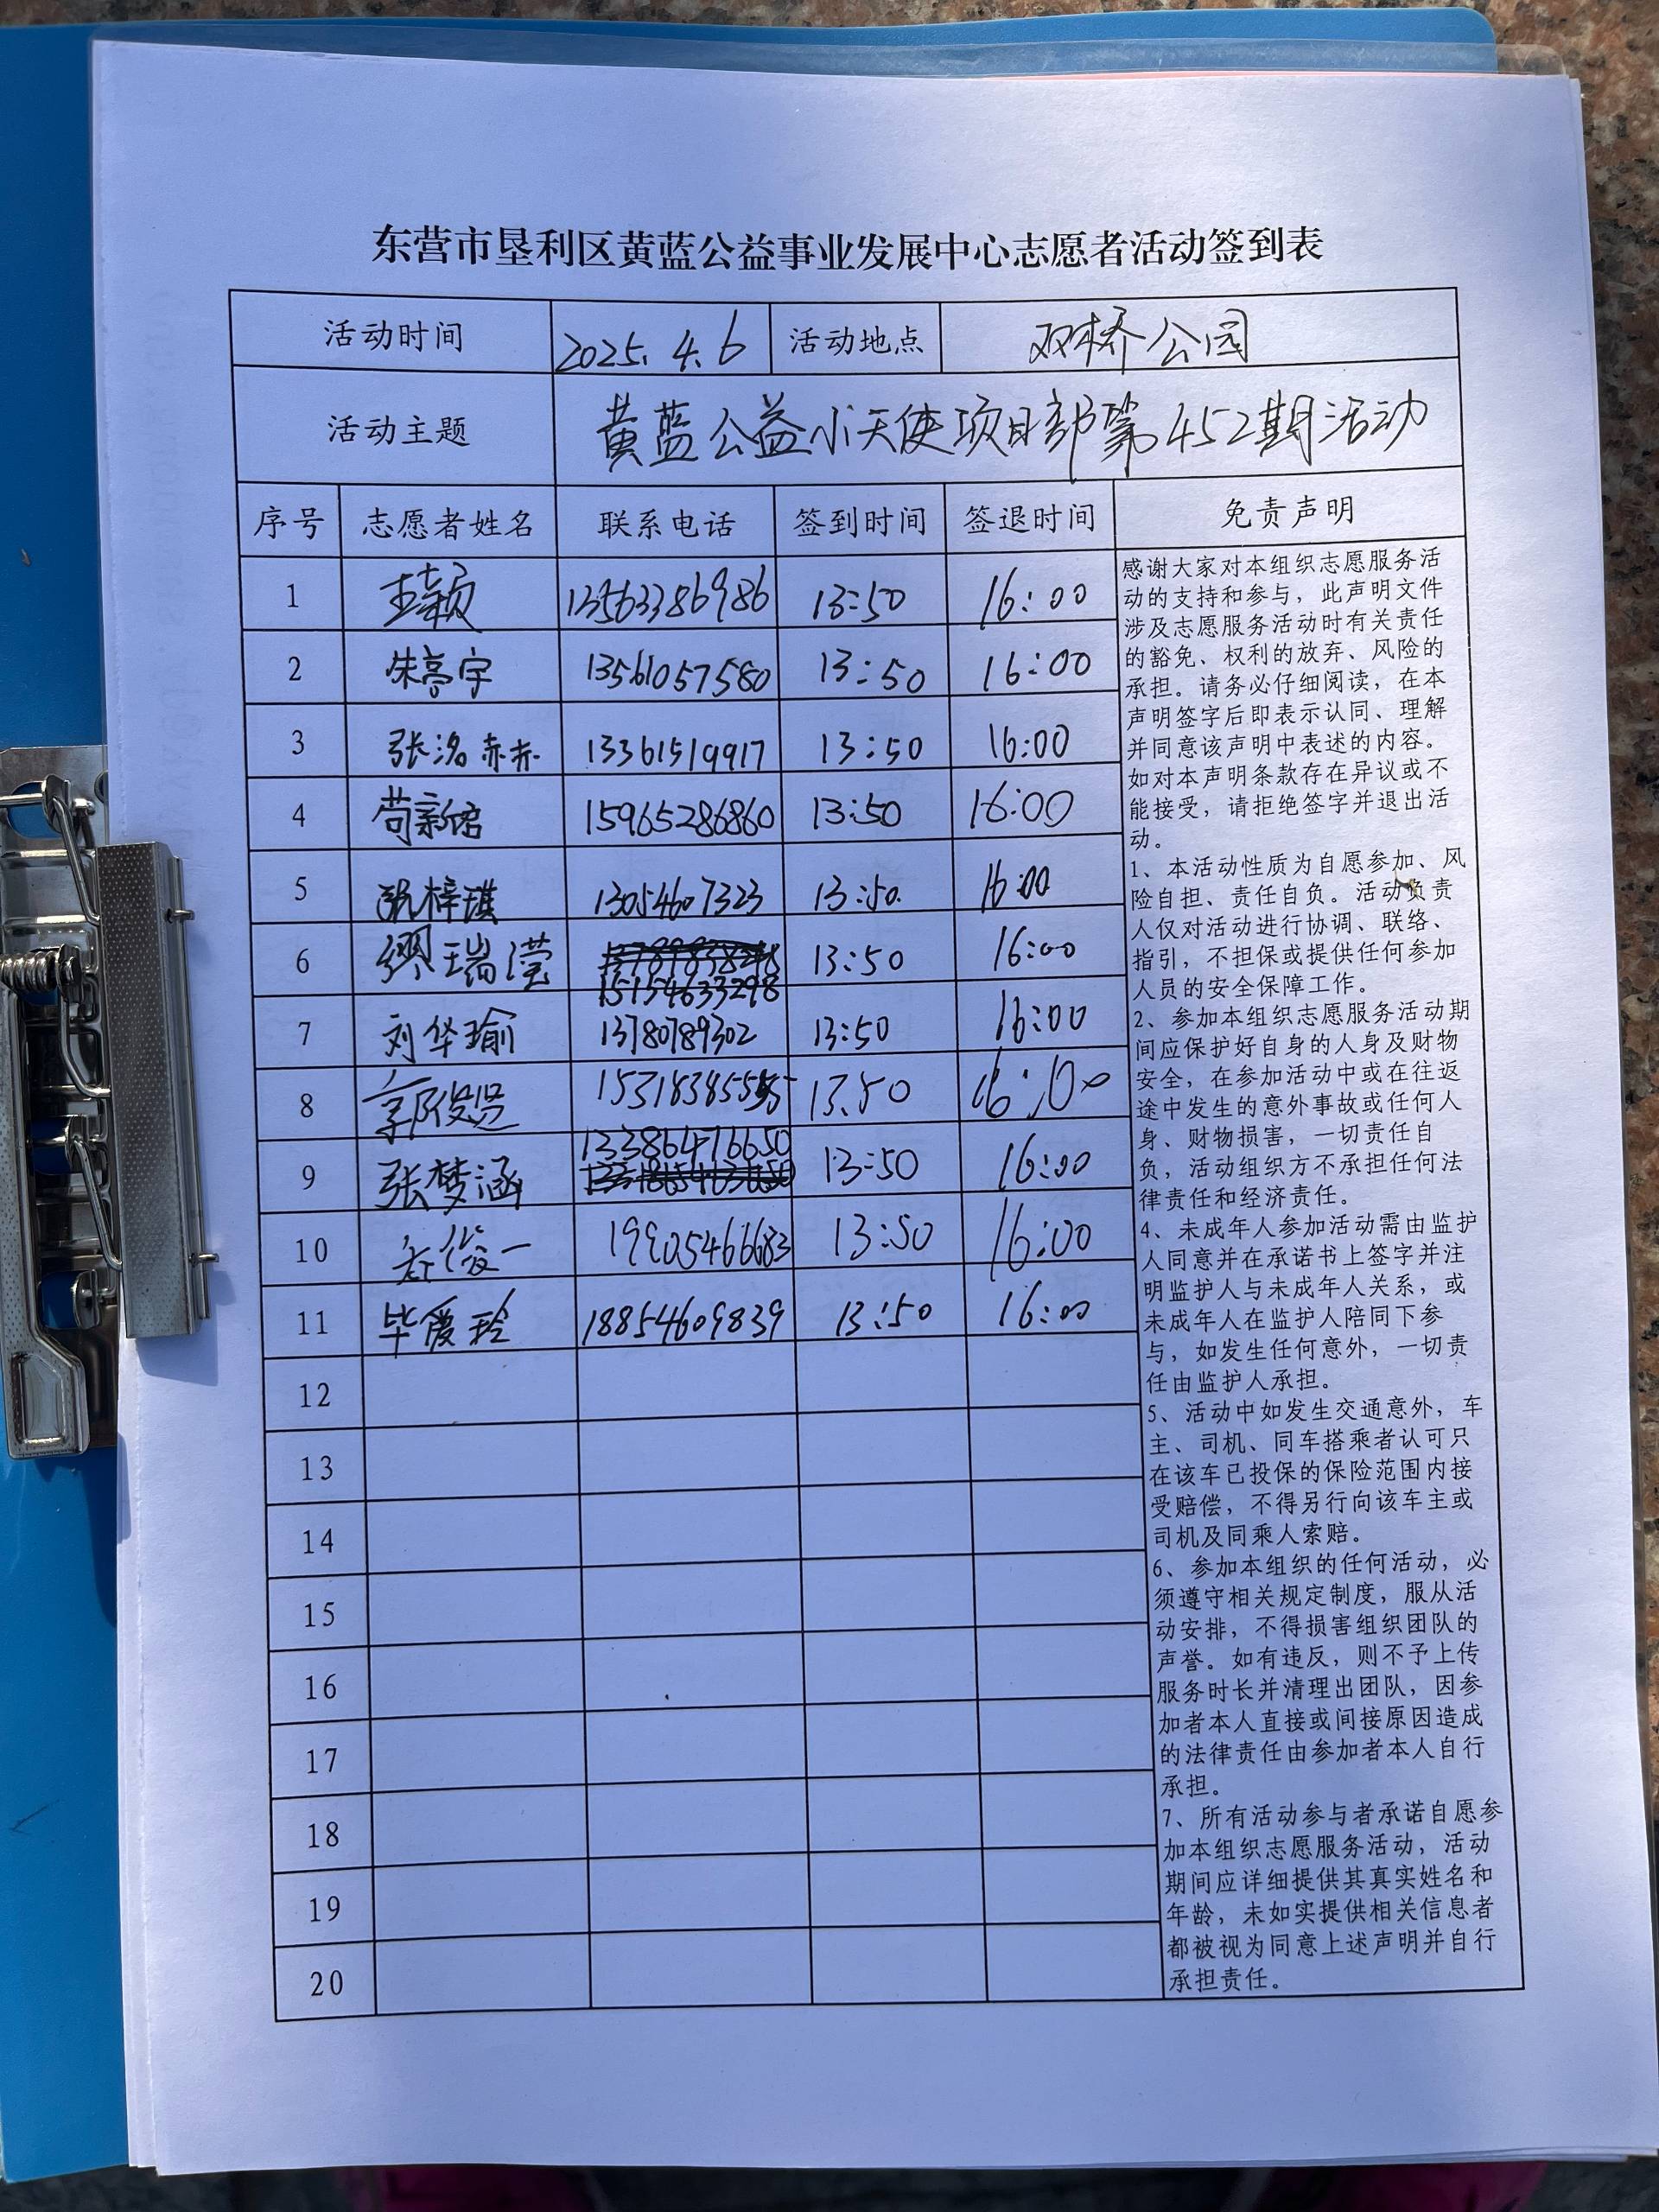 东营市垦利区黄蓝公益事业发展中心志愿者活动签到表
活动时间 2025.4.6 活动地点 双桥公园
活动主题 黄蓝公益小天使项目部第452期活动
序号 志愿者姓名 联系电话 签到时间 签退时间 免责声明
1 王颖 13563386986 13:50 16:00
2 朱亭宇 13561057580 13:50 16:00
3 张洺赫 13361519917 13:50 16:00
4 苟新 15965286860 13:50 16:00
5 张梓琪 13054607323 13:50. 16:00
6 缪瑞滢 15154633298 13:50 16:00
7 刘华瑜 13780789302 13:50 16:00
8 郭俊 13.50
9 张梦涵 13386476650 13:50 16:00
10 俊一 19905466683 13:50 16:00
11 毕爱玲 18854609839 13:50 16:00
12
13
14
15
16
17
18
19
20
感谢大家对本组织志愿服务活
动的支持和参与，此声明文件
涉及志愿服务活动时有关责任
的豁免、权利的放弃、风险的
承担。请务必仔细阅读，在本
声明签字后即表示认同、理解
并同意该声明中表述的内容。
如对本声明条款存在异议或不
能接受，请拒绝签字并退出活
动。
1、本活动性质为自愿参加、风
险自担、责任自负。活动负责
人仅对活动进行协调、联络、
指引，不担保或提供任何参加
人员的安全保障工作。
2、参加本组织志愿服务活动期
间应保护好自身的人身及财物
安全，在参加活动中或在往返
途中发生的意外事故或任何人
身、财物损害，一切责任自
负，活动组织方不承担任何法
律责任和经济责任。
4、未成年人参加活动需由监护
人同意并在承诺书上签字并注
明监护人与未成年人关系，或
未成年人在监护人陪同下参
与，如发生任何意外，一切责
任由监护人承担。
5、活动中如发生交通意外，车
主、司机、同车搭乘者认可只
在该车已投保的保险范围内接
受赔偿，不得另行向该车主或
司机及同乘人索赔。
6、参加本组织的任何活动，必
须遵守相关规定制度，服从活
动安排，不得损害组织团队的
声誉。如有违反，则不予上传
服务时长并清理出团队，因参
加者本人直接或间接原因造成
的法律责任由参加者本人自行
承担。
7、所有活动参与者承诺自愿参
加本组织志愿服务活动，活动
期间应详细提供其真实姓名和
年龄，未如实提供相关信息者
都被视为同意上述声明并自行
承担责任。